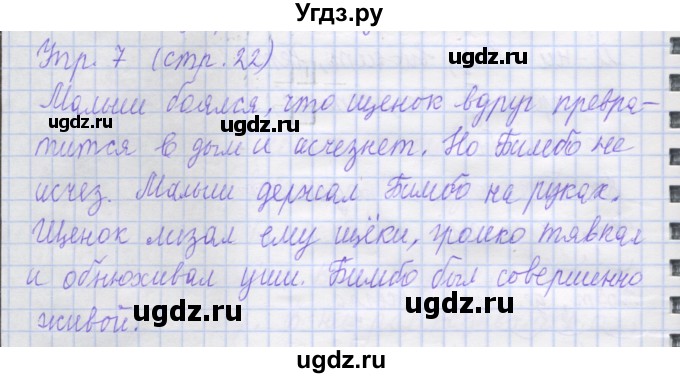 Угдз.ру
Упр. 7 (стр. 22)
ugdz.ru
Малыш боялся, что щенок вдруг превра-
ugdz.ru ugdz.ru
тится в дым и исчезнет. Но Бимбо не
исчез. Малыш держал Бимбо на руках.
ugdz.ru ugdz.ru
Щенок лизал ему щёки, громко тявкал
и обнюхивал уши. Бимбо был совершенно
ugdz.ru ugdz.ru
живой.
ugdz.ru